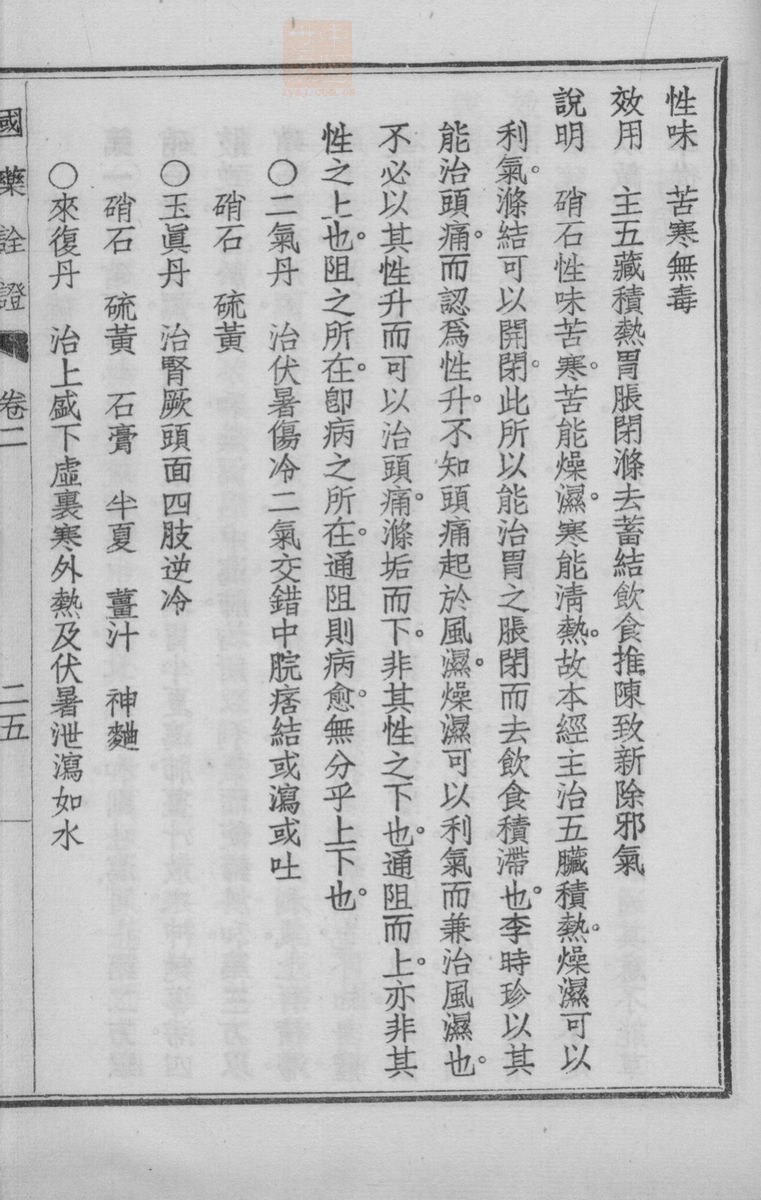 性味　苦寒無毒
效用　主五藏積熱胃脹閉滌去蓄結飲食推陳致新除邪氣
說明　硝石性味苦寒。苦能燥濕。寒能淸熱。故本經主治五臟積熱。燥濕可以
利氣。滌結可以開閉。此所以能治胃之脹閉而去飲食積滯也。李時珍以其
能治頭痛。而認爲性升。不知頭痛起於風濕。燥濕可以利氣而兼治風濕也。
不必以其性升而可以治頭痛。滌垢而下。非其性之下也。通阻而上。亦非其
性之上也。阻之所在。卽病之所在。通阻則病愈。無分乎上下也。
〇二氣丹　治伏暑傷冷二氣交錯中脘痞結或瀉或吐
硝石　硫黃
〇玉眞丹　治腎厥頭面四肢逆冷
硝石　硫黃　石膏　半夏　薑汁　神麯
〇來復丹　治上盛下虛裏寒外熱及伏暑泄瀉如水
國藥詮證　卷二　二五